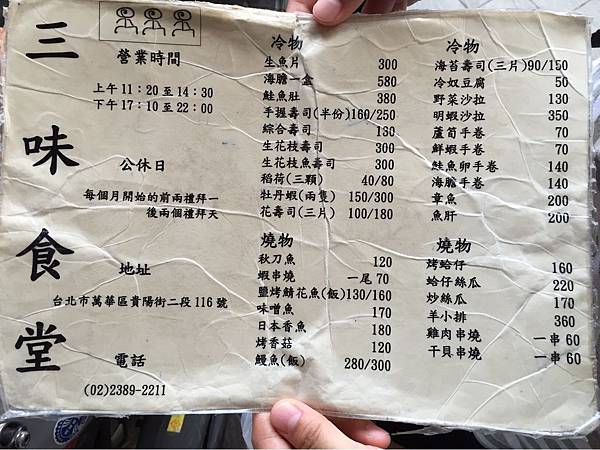 三味食堂
營業時間
上午11:20至14:30
下午17:10至22:00
公休日
每個月開始的前兩禮拜一
後兩個禮拜天
地址
台北市萬華區貴陽街二段116號
電話
(02)2389-2211
冷物
生魚片 300
海膽一盒 580
鮭魚肚 380
手握壽司(半份)160/250
綜合壽司 130
生花枝壽司 300
生花枝魚壽司 300
稻荷(三顆) 40/80
牡丹蝦(兩隻) 150/300
花壽司(三片) 100/180
燒物
秋刀魚 120
蝦串燒 一尾 70
鹽烤鯖花魚(飯)130/160
味噌魚 170
日本香魚 180
烤香菇 120
鰻魚(飯) 280/300
冷物
海苔壽司(三片)90/150
冷奴豆腐 50
野菜沙拉 130
明蝦沙拉 350
蘆筍手卷 70
鮮蝦手卷 70
鮭魚卵手卷 140
海膽手卷 140
章魚 200
魚肝 200
燒物
烤蛤仔 160
蛤仔絲瓜 220
炒絲瓜 170
羊小排 360
雞肉串燒 一串 60
干貝串燒 一串 60